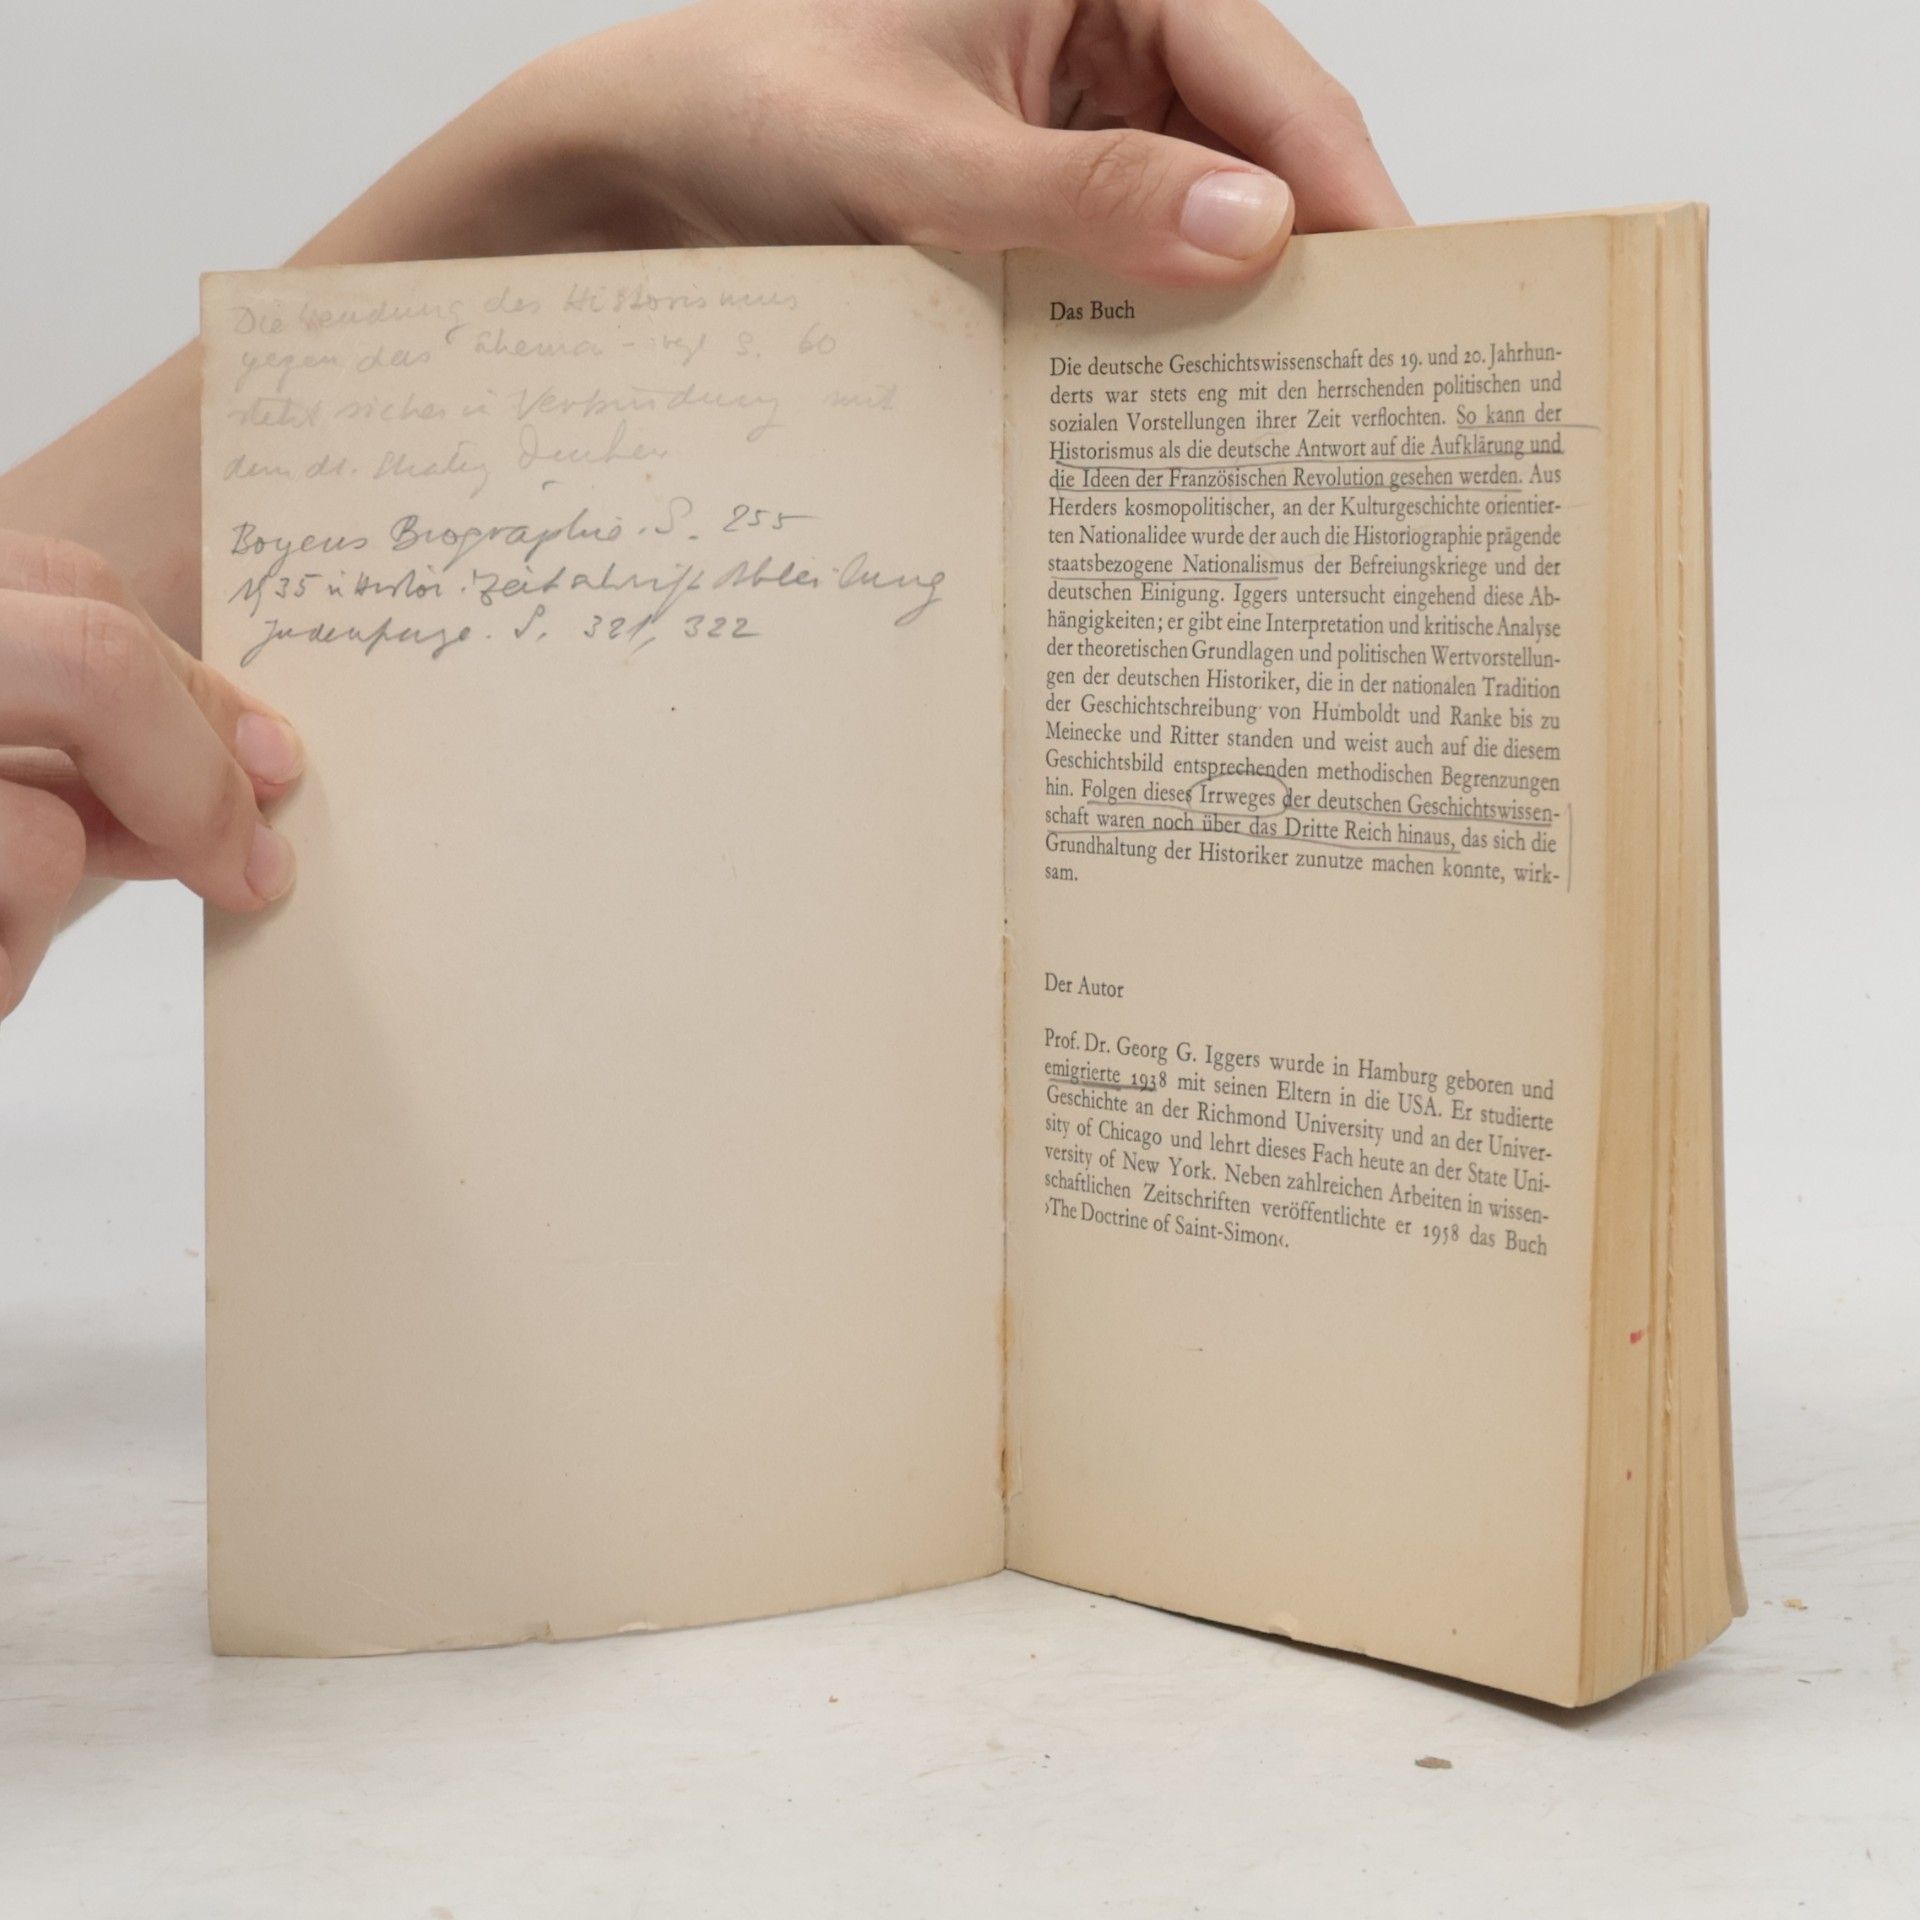 Die Wendung des Historismus
gegen das Schema - vgl S. 60
steht sicher in Verbindung mit
dem dt.
Boyens Biographie. S. 255
1935 in Histor. Zeitschrift Abteilung
Judenfrage. S. 321, 322
Das Buch
Die deutsche Geschichtswissenschaft des 19. und 20. Jahrhun-
derts war stets eng mit den herrschenden politischen und
sozialen Vorstellungen ihrer Zeit verflochten. So kann der
Historismus als die deutsche Antwort auf die Aufklärung und
die Ideen der Französischen Revolution gesehen werden. Aus
Herders kosmopolitischer, an der Kulturgeschichte orientier-
ten Nationalidee wurde der auch die Historiographie prägende
staatsbezogene Nationalismus der Befreiungskriege und der
deutschen Einigung. Iggers untersucht eingehend diese Ab-
hängigkeiten; er gibt eine Interpretation und kritische Analyse
der theoretischen Grundlagen und politischen Wertvorstellun-
gen der deutschen Historiker, die in der nationalen Tradition
der Geschichtschreibung von Humboldt und Ranke bis zu
Meinecke und Ritter standen und weist auch auf die diesem
Geschichtsbild entsprechenden methodischen Begrenzungen
hin. Folgen dieses Irrweges der deutschen Geschichtswissen-
schaft waren noch über das Dritte Reich hinaus, das sich die
Grundhaltung der Historiker zunutze machen konnte, wirk-
sam.
Der Autor
Prof. Dr. Georg G. Iggers wurde in Hamburg geboren und
emigrierte 1938 mit seinen Eltern in die USA. Er studierte
Geschichte an der Richmond University und an der Univer-
sity of Chicago und lehrt dieses Fach heute an der State Uni-
versity of New York. Neben zahlreichen Arbeiten in wissen-
schaftlichen Zeitschriften veröffentlichte er 1958 das Buch
›The Doctrine of Saint-Simon‹.